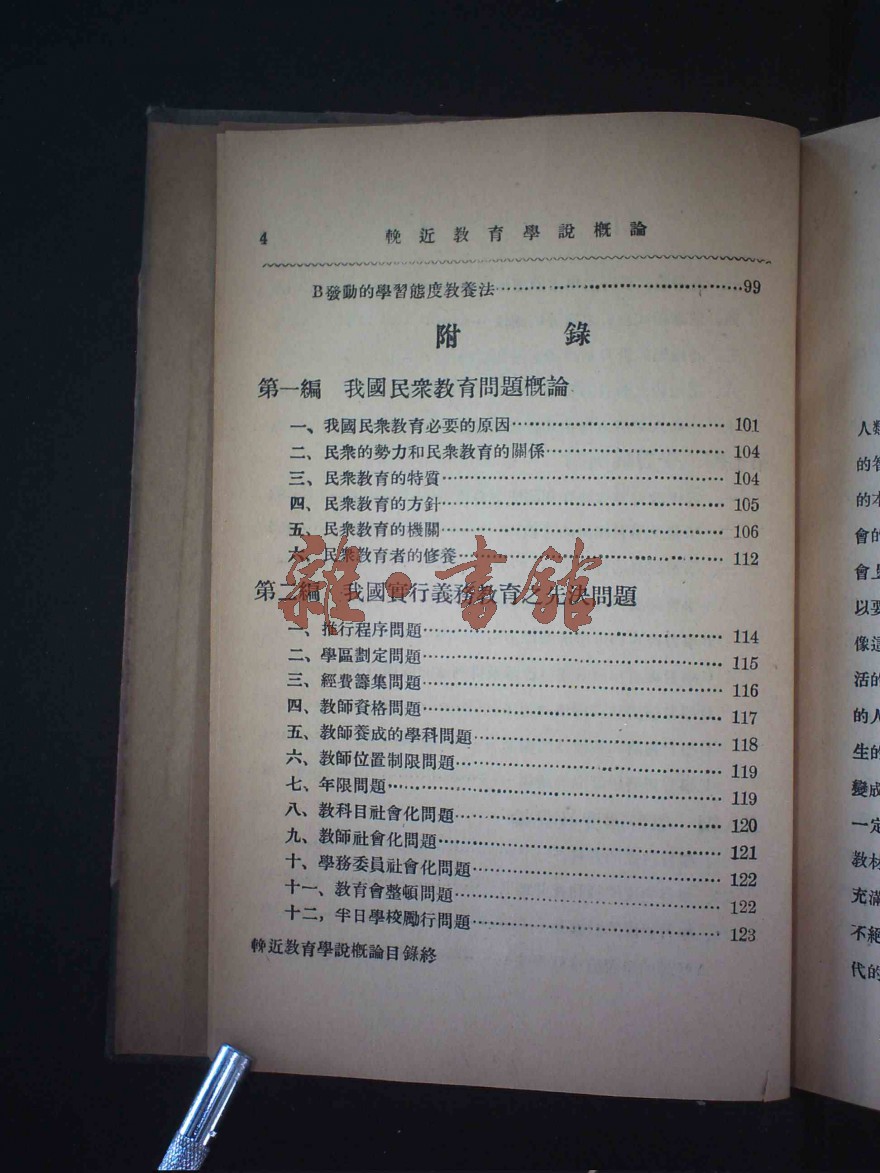 4 輓近教育學說概論
B發動的學習態度教養法 99
附錄
第一編 我國民衆教育問題概論
一、我國民衆教育必要的原因 101
二、民衆的勢力和民衆教育的關係 104
三、民衆教育的特質 104
四、民衆教育的方針 105
五、民衆教育的機關 106
六、民衆教育者的修養 112
第二編 我國實行義務教育之先決問題
一、推行程序問題 114
二、學區劃定問題 115
三、經費籌集問題 116
四、教師資格問題 117
五、教師養成的學科問題 118
六、教師位置制限問題 119
七、年限問題 119
八、教科目社會化問題 120
九、教師社會化問題 121
十、學務委員社會化問題 122
十一、教育會整頓問題 122
十二，半日學校勵行問題 123
輓近教育學說概論目錄終
雜·書館
人類
的
的本
會的
會
以要
像這
活的
的人
生的
變成
一定
教材
充滿
不絕
代的